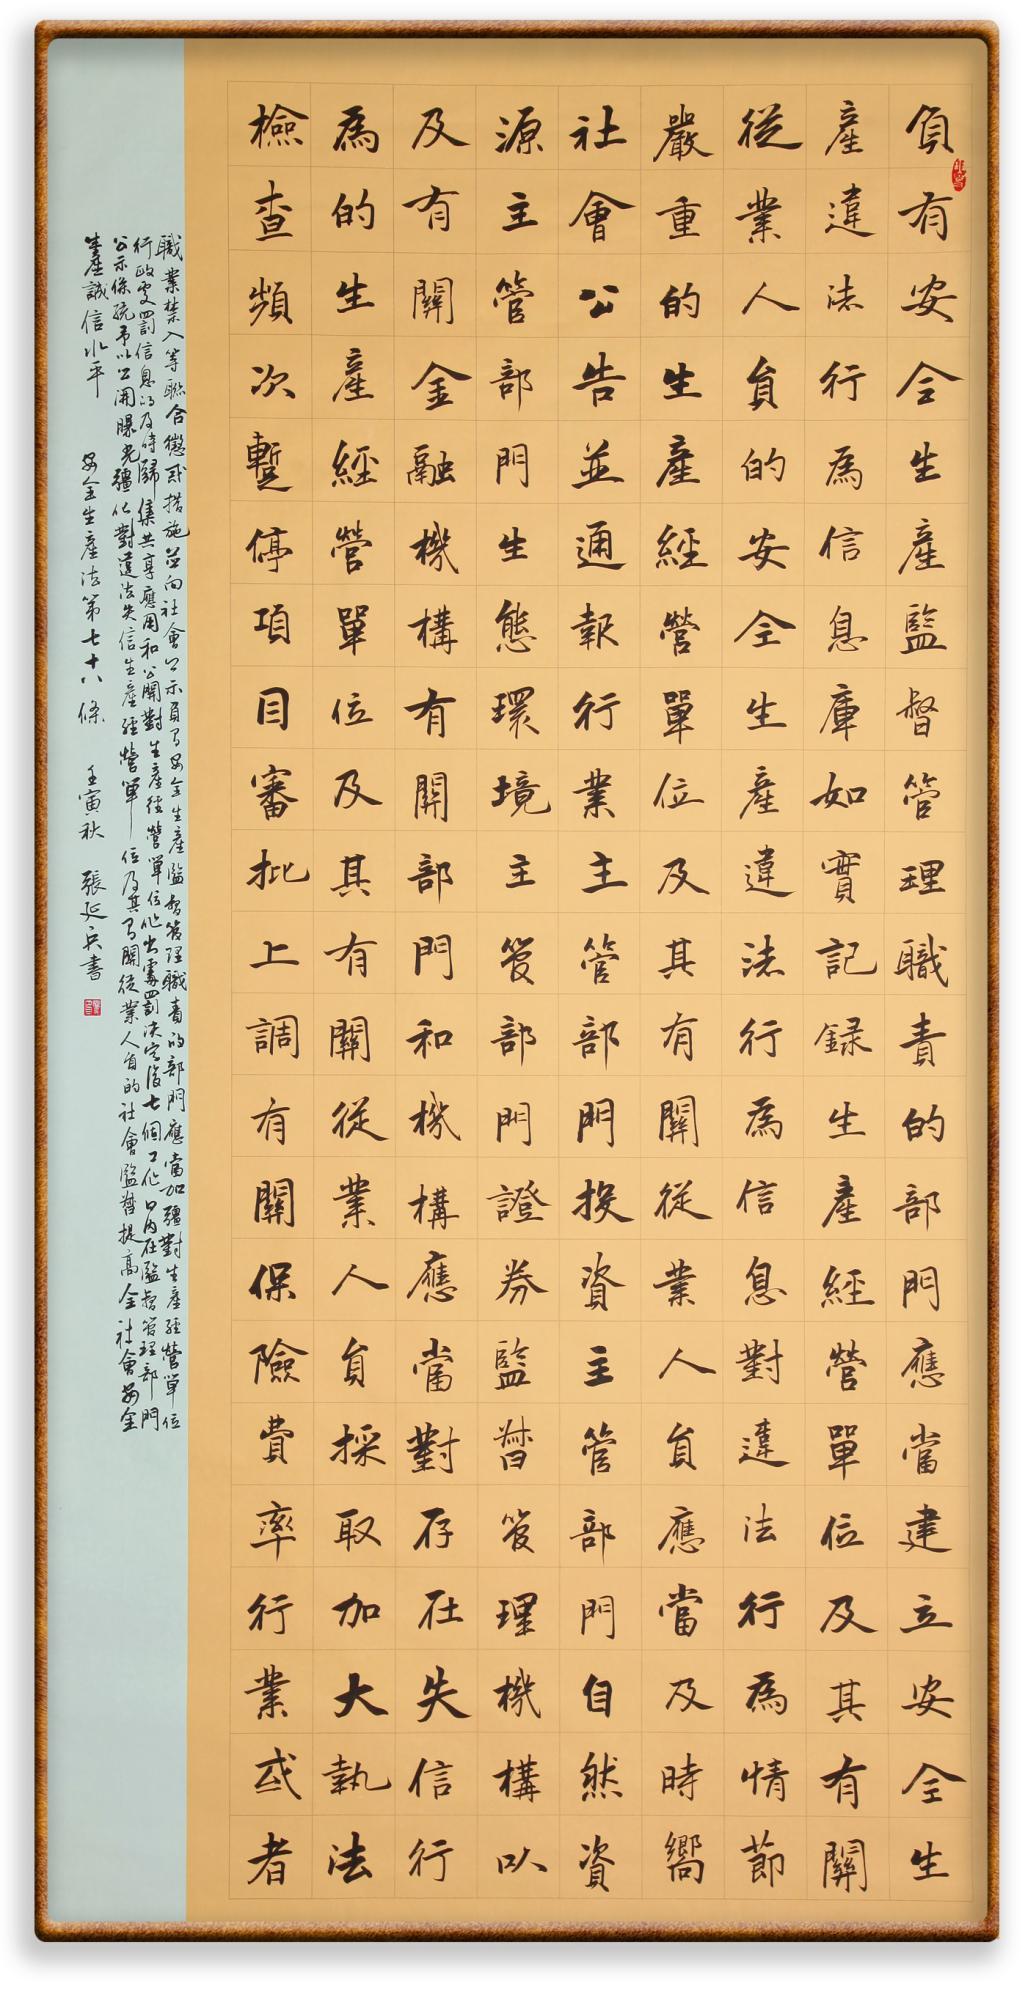 負有安全生產監督管理職責的部門應當建立安全生
產違法行為信息庫如實記録生產經營單位及其有關
從業人員的安全生產違法行為信息對違法行為情節
嚴重的生產經營單位及其有關從業人員應當及時嚮
社會公告並通報行業主管部門投資主管部門自然資
源主管部門生態環境主管部門證券監督管理機構以
及有關金融機構有關部門和機構應當對存在失信行
為的生產經營單位及其有關從業人員採取加大執法
檢查頻次暫停項目審批上調有關保險費率行業或者
職業禁入等聯合懲戒措施並向社會公示負有安全生產監督管理職責的部門應當加疆對生產經營單位
行政處罰信息的及時歸集共享應用和公開對生產經營單位作出處罰決定後七個工作日內在監督管理部門
公示係統予以公開曝光疆化對違法失信生產經營單位及其有關從業人員的社會監督提高全社會安全
生產誠信水平 安全生產法第七十八條 壬寅秋 張延兵書